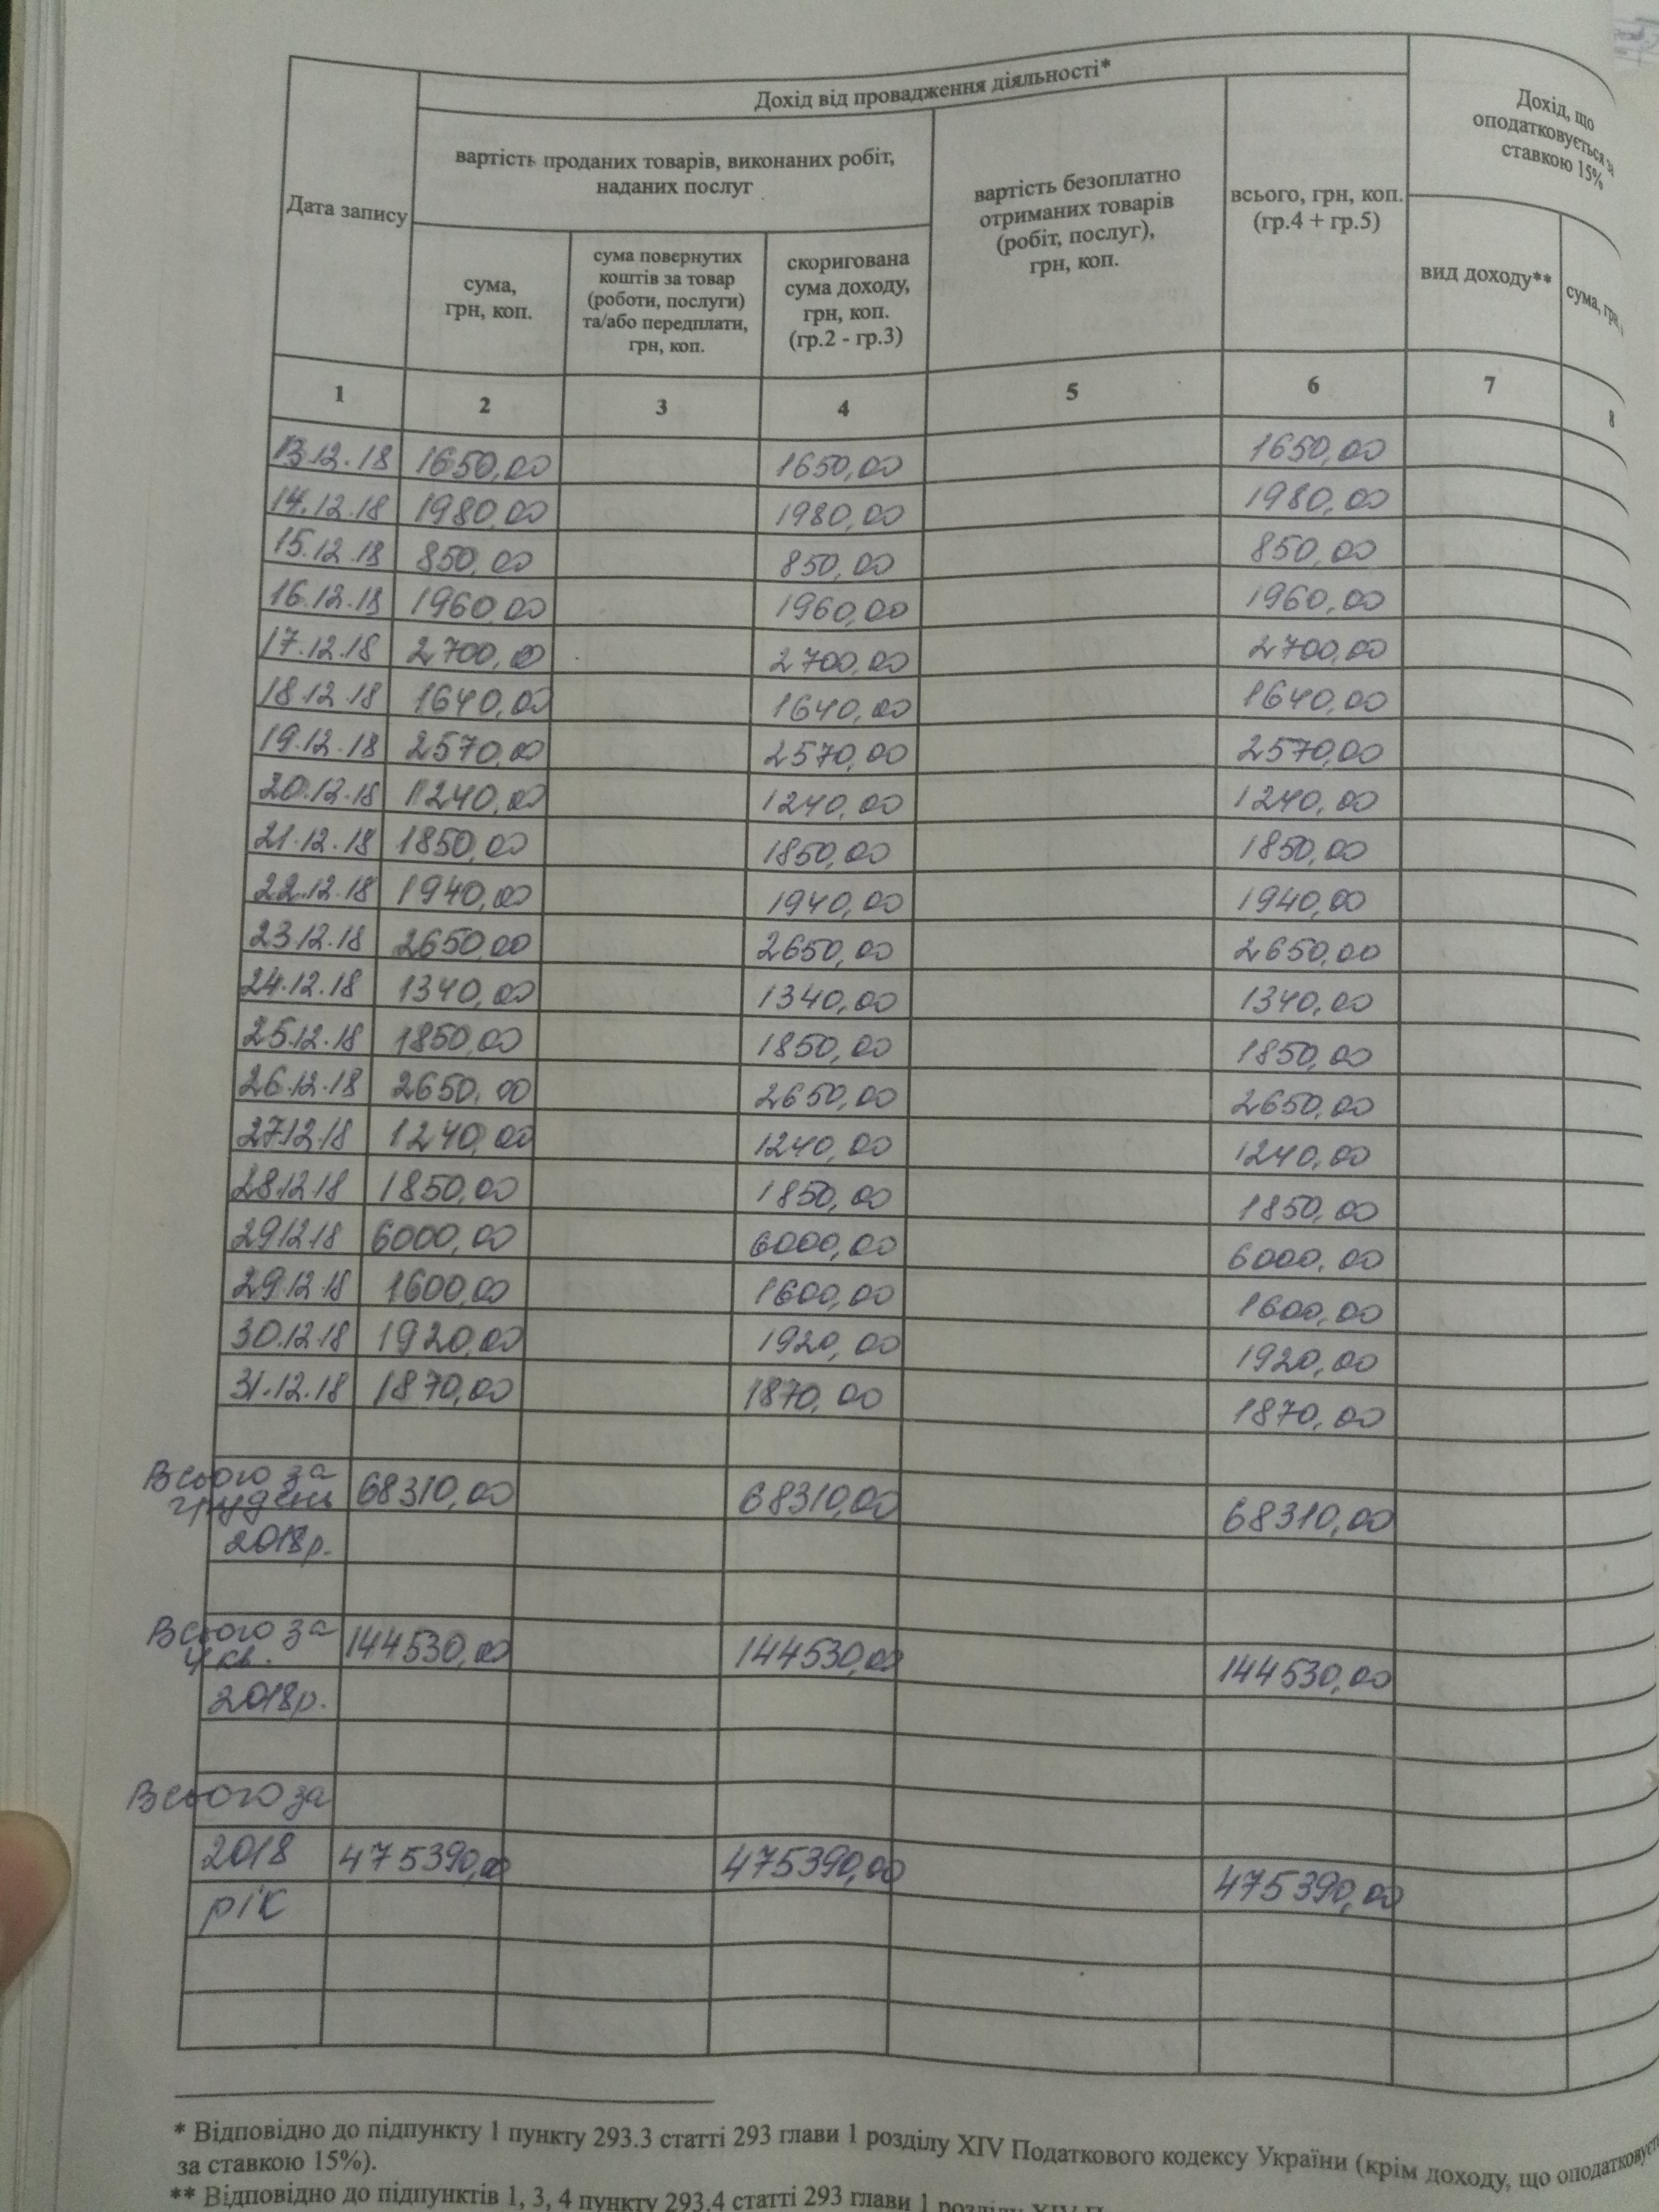 Дохід від провадження діяльності*
Дохід, що
оподатковується за
ставкою 15%
Дата запису
вартість проданих товарів, виконаних робіт,
наданих послуг
вартість безоплатно
отриманих товарів
(робіт, послуг),
грн, коп.
всього, грн, коп.
(гр.4 + гр.5)
сума,
грн, коп.
сума повернутих
коштів за товар
(роботи, послуги)
та/або передплати,
грн, коп.
скоригована
сума доходу,
грн, коп.
(гр.2 - гр.3)
вид доходу**
сума, грн,
1 2 3 4 5 6 7 8
13.12.18 1650,00 1650,00 1650,00
14.12.18 1980,00 1980,00 1980,00
15.12.18 850,00 850,00 850,00
16.12.18 1960,00 1960,00 1960,00
17.12.18 2700,00 2700,00 2700,00
18.12.18 1640,00 1640,00 1640,00
19.12.18 2570,00 2570,00 2570,00
20.12.18 1240,00 1240,00 1240,00
21.12.18 1850,00 1850,00 1850,00
22.12.18 1940,00 1940,00 1940,00
23.12.18 2650,00 2650,00 2650,00
24.12.18 1340,00 1340,00 1340,00
25.12.18 1850,00 1850,00 1850,00
26.12.18 2650,00 2650,00 2650,00
27.12.18 1240,00 1240,00 1240,00
28.12.18 1850,00 1850,00 1850,00
29.12.18 6000,00 6000,00 6000,00
29.12.18 1600,00 1600,00 1600,00
30.12.18 1920,00 1920,00 1920,00
31.12.18 1870,00 1870,00 1870,00
Всього за
грудень 68310,00 68310,00 68310,00
2018р.
Всього за
4 кв. 144530,00 144530,00 144530,00
2018р.
Всього за
2018 475390,00 475390,00 475390,00
рік
* Відповідно до підпункту 1 пункту 293.3 статті 293 глави 1 розділу XIV Податкового кодексу України (крім доходу, що оподатковується
за ставкою 15%).
** Відповідно до підпунктів 1, 3, 4 пункту 293.4 статті 293 глави 1 розділу XIV